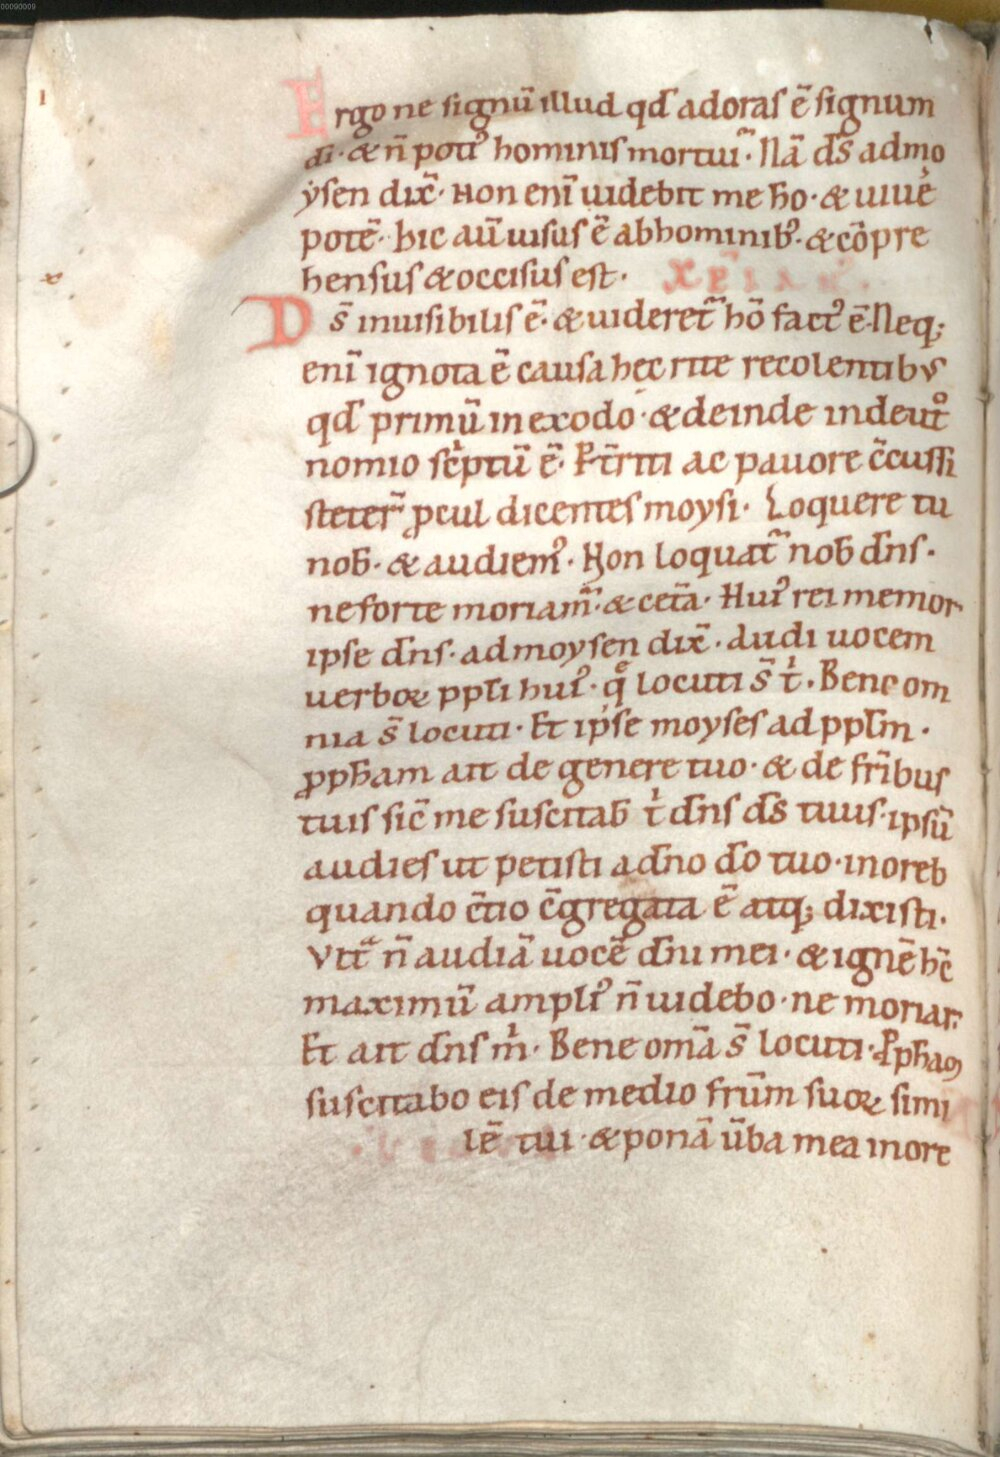 00090009
Ergo ne signū illud qd̄ adoras ē signum
dī · & n̄ poti᷒ hominis mortui᷒ · Nā d̄s admo
ẏsen dix̄ · Non enī uidebit me h̄o · & uiue᷒
potē · hic aū uisus ē ab hominib᷒ · & cōpre
hensus & occisus est · X̄PĪAN᷒ ·
D̄s inuisibilis ē · & uideret᷒ hō fact᷒ ē · Neq;
enī ignota ē causa hec rite recolentibus
qd̄ primū in exodo · & deinde in deut°
nomio sc̄ptū ē · P̄t̄rriti ac pauore c̄cussi
steter̄ ꝓcul dicentes moysi · Loquere tu
nob̄ · & audiem᷒ · Non loquat᷒ nob̄ dn̄s ·
ne forte moriam᷒ · & cet̄a · Hui᷒ rei memor
ipse dn̄s · ad moysen dix̄ · Audi uocem
uerboꝝ ppl̄i hui᷒ · q̊ locuti s̄ t̍ · Bene om
nia s̄ locuti · Et ipse moyses ad ppl̄m ·
ꝓph̄am ait de genere tuo · & de fr̄ibus
tuis sic̄ me suscitab̄ t̍ dn̄s d̄s tuus · ipsū
audies ut petisti a dn̄o d̄o tuo · in oreb
quando c̄tio c̄gregata ē atq; dixisti ·
Vlt᷒ n̄ audiā uocē dn̄i mei · & ignē h̄c
maximū ampli᷒ n̄ uidebo · ne moriar ·
Et ait dn̄s m̍ · Bene om̄a s̄ locuti · Ꝓph̄am
suscitabo eis de medio fr̄um suoꝝ simi
lē tui · & ponā ūba mea in ore